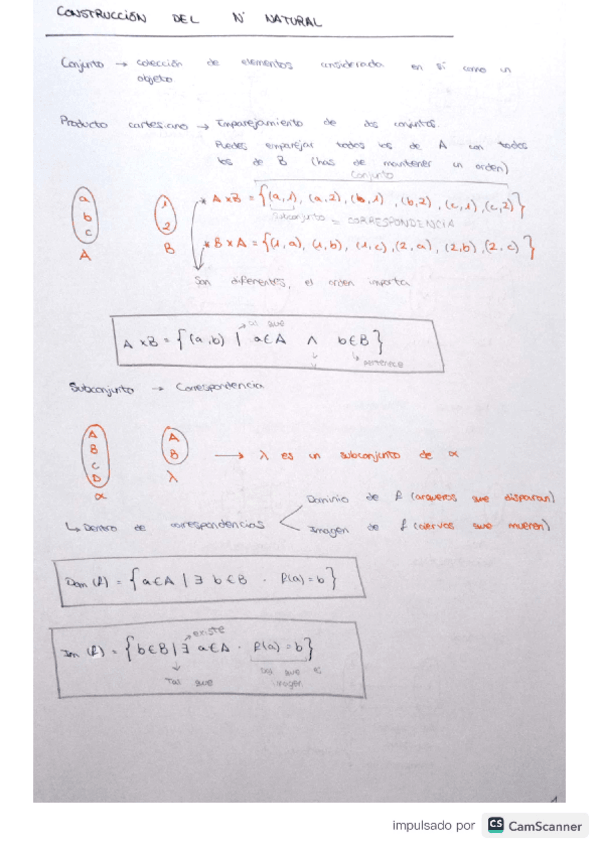 CONSTRUCCIÓN DEL Nº NATURAL
Conjunto → colección de elementos considerada en sí como un
objeto
Producto cartesiano → Emparejamiento de dos conjuntos.
Puedes emparejar todos los de A con todos
los de B (has de mantener un orden)
Conjunto
a
b
c
A
1
2
B
* A×B = {(a,1), (a,2), (b,1), (b,2), (c,1), (c,2)}
Subconjunto = CORRESPONDENCIA
* B×A = {(1,a), (1,b), (1,c), (2,a), (2,b), (2,c)}
Son diferentes, el orden importa
que
A×B = {(a,b) | a∈A ∧ b∈B}
pertenece
Subconjunto → Correspondencia
A
B
C
D
α
A
B
λ
→ λ es un subconjunto de α
Dominio de f (arqueros que disparan)
↳ Dentro de correspondencias
Imagen de f (ciervos que mueren)
Dom (f) = {a∈A | ∃ b∈B · f(a)=b}
existe
Im (f) = {b∈B | ∃ a∈A · f(a)=b}
Tal que
que
imagen
1
impulsado por CS CamScanner